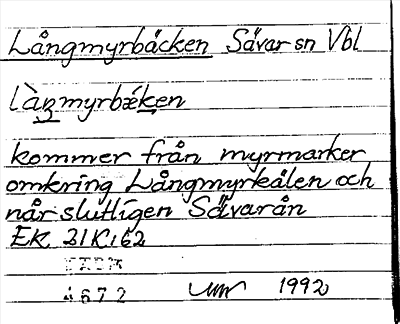 Långmyrbäcken Sävar sn Vbl
làŋmyrbǽken
kommer från myrmarker
omkring Långmyrkålen och
når slutligen Sävarån
EK 21K:62
4672 1992